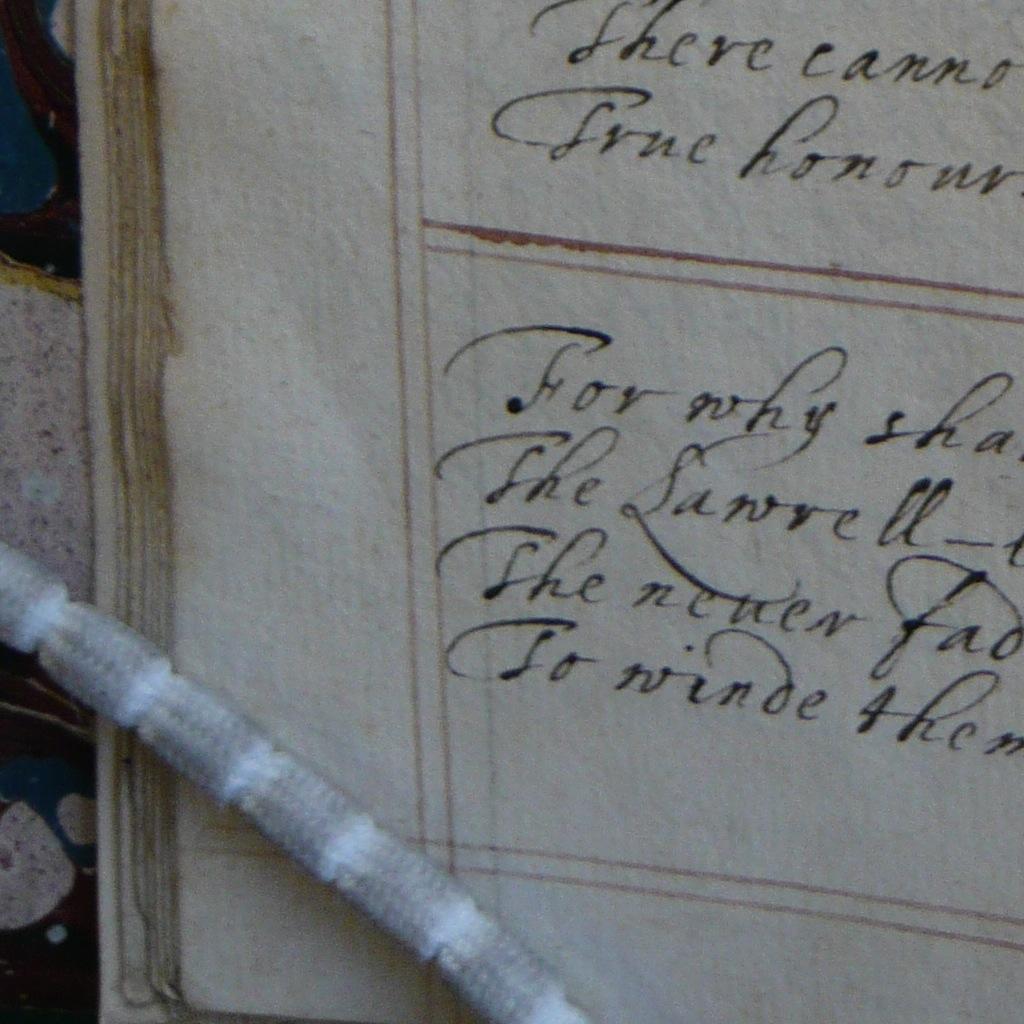 There canno
True honour.
For why sha
The Lawrell-l
The neuer fad
To winde them